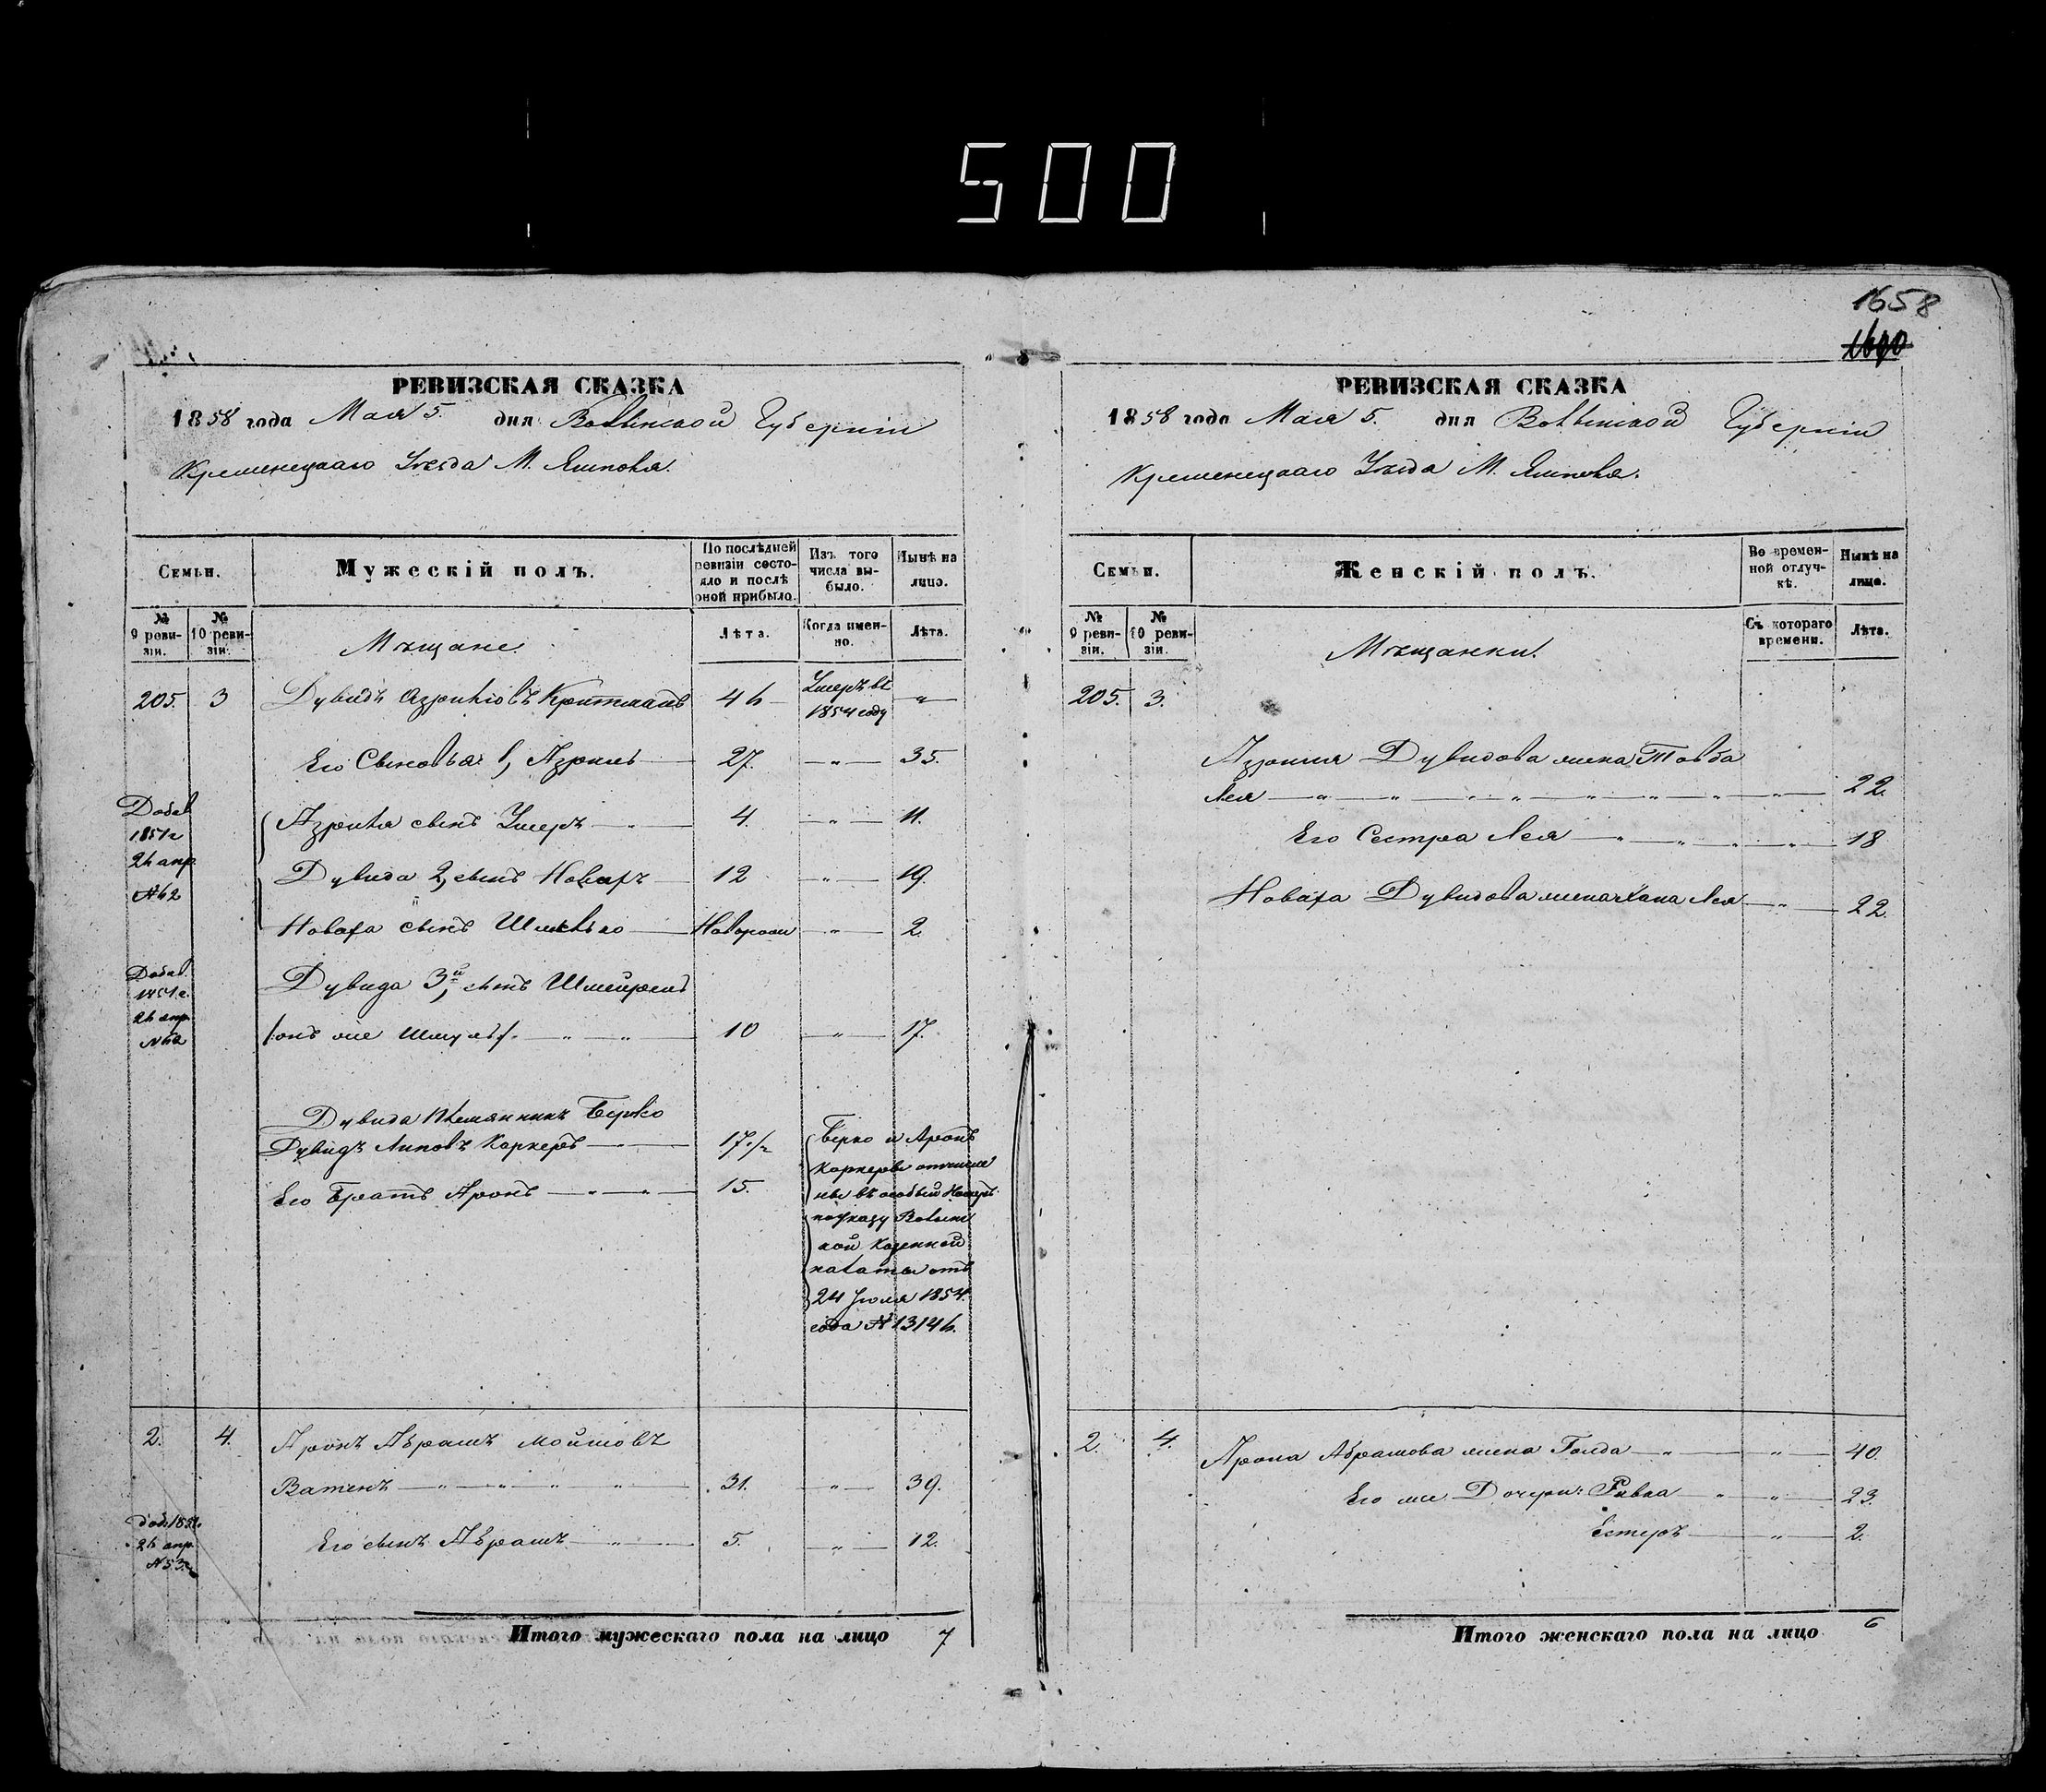 500
1658
1690
РЕВИЗСКАЯ СКАЗКА
1858 года Мая 5. дня Волынской Губернiи
Кременецкаго Уезда М. Ямполя.
Семьи.
Мужескiй полъ.
По послѣдней ревизiи состояло и послѣ оной прибыло.
Изъ того числа выбыло.
Нынѣ на лицо.
№ 9 ревизiи.
№ 10 ревизiи.
Мѣщане.
Лѣта.
Когда именно.
Лѣта.
205. 3 Дувидъ Азрилiовъ 46 Умеръ въ 1854 году „
Его Сыновья: 1, Азриль 27. „ 35.
Добав 1851 г 26 апр. №62
Азриля сынъ Умеръ „ 4. „ 11.
Дувида 2, сынъ Ховаръ 12 „ 19.
сынъ Новорож „ 2.
Добав. 1851 г. 26 апр. №62
Дувида 3й, сынъ
онъ же Шмуль „ „ 10 „ 17.
Дувида Племянникъ Берко
Дувидъ Липовъ Коркеръ „ 17 1/2
Его Братъ Аронъ „ „ 15.
Берко и Аронъ
Коркеры отчисле
ны въ особый Номеръ
по указу Волынс
кой Казенной
палаты отъ
24 Июля 1854.
года № 13146.
2. 4. Аронъ Абрамъ Мойшовъ
Ватенъ „ „ „ „ 31. „ 39.
Доб. 1851. 26 апр. №53.
Его сынъ Абрамъ „ 5. „ 12.
Итого мужескаго пола на лицо 7
РЕВИЗСКАЯ СКАЗКА
1858 года Мая 5. дня Волынской Губернiи
Кременецкаго Уезда М. Ямполя.
Семьи.
Женскiй полъ.
Во временной отлучкѣ.
Нынѣ на лицо.
№ 9 ревизiи.
№ 10 ревизiи.
Мѣщанки.
Съ котораго времени.
Лѣта.
205. 3.
Азриля Дувидова жена Товба
Лея „ „ „ „ „ „ „ „ 22.
Его Сестра Лея „ „ „ „ 18
Дувидова жена Хана Лея „ 22.
2. 4. Арона Абрамова жена Голда „ „ 40.
Его же Дочери: Ривка „ „ 23.
Естеръ „ 2.
Итого женскаго пола на лицо 6